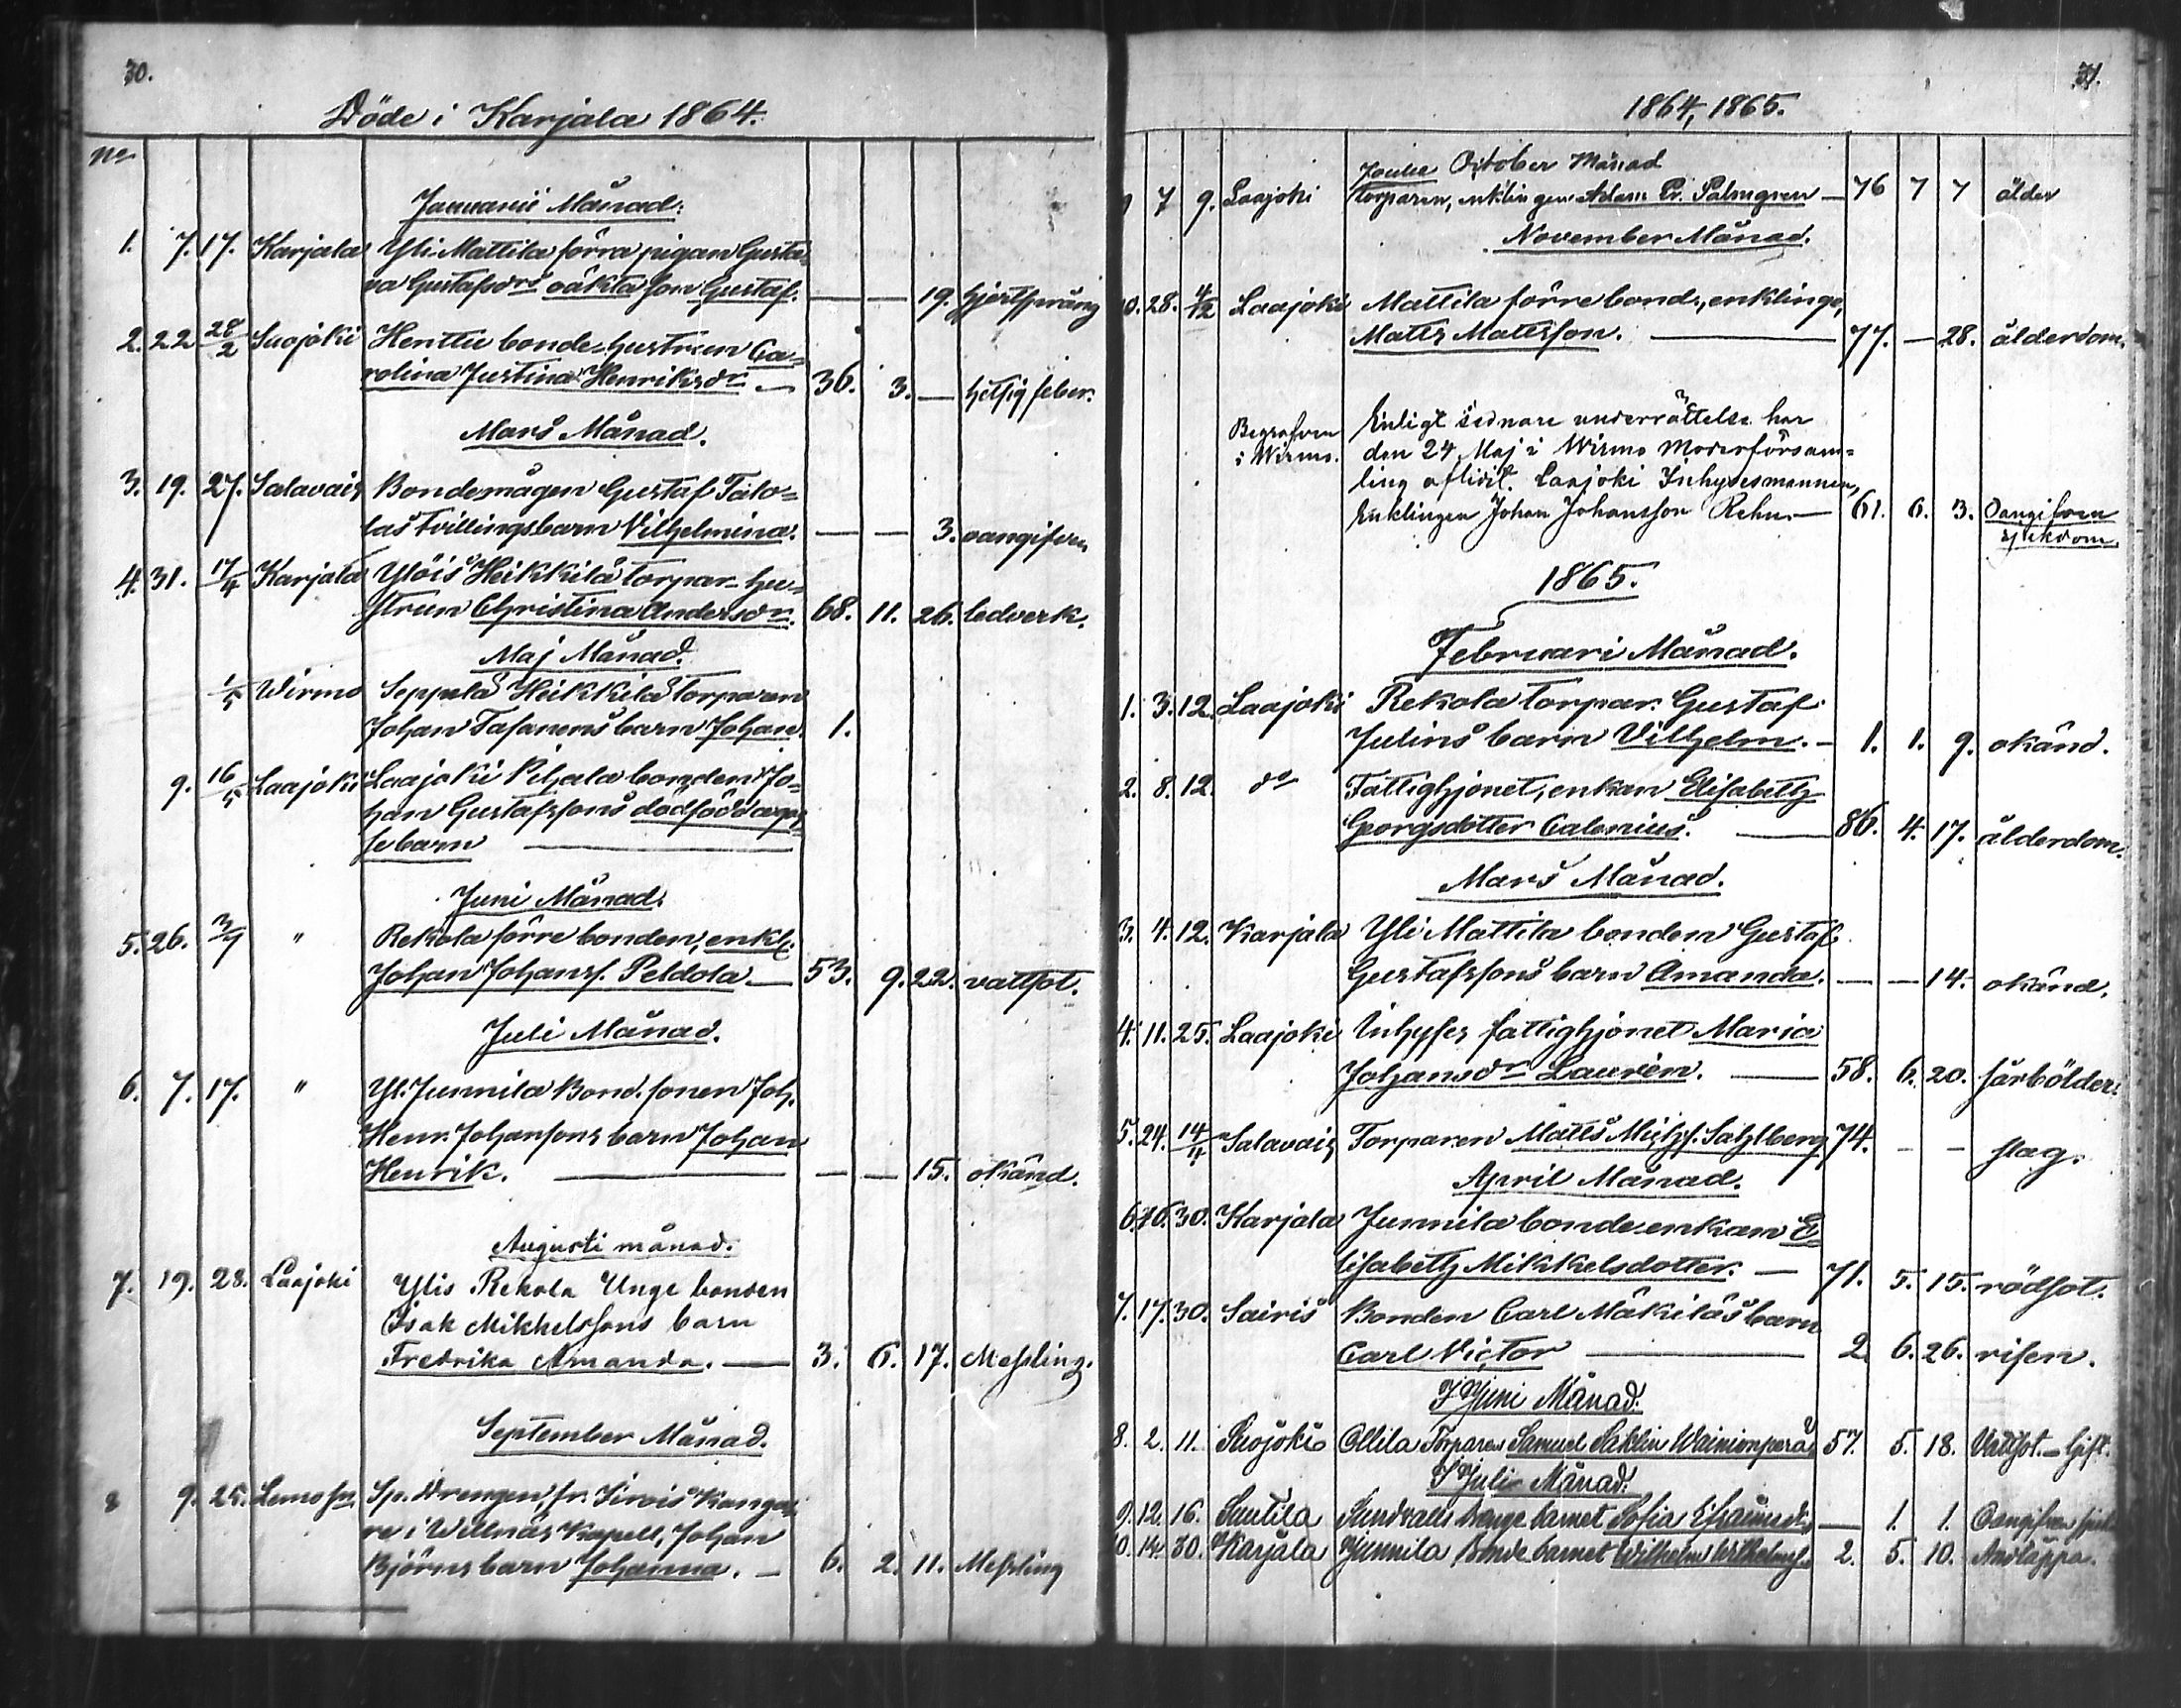 30.
Döde i Karjala 1864.
No
Januarii Månad.
1. 7. 17. Karjala Yli Mattila förra pigan Gusta=
va Gustafsdrs oäkta son Gustaf. — — 19. hjertsprång
2. 22 28/2 Suojoki Henttu bonde-hustrun Ca=
rolina Justina Henriksdr. — 36. 3. — hetsig feber.
Mars Månad.
3. 19. 27. Salavais Bondemågen Gustaf Talo=
las tvillingsbarn Vilhelmina. — — 3. oangifven
4. 31. 17/4 Karjala Ylöis Heikkilä torpar-hu=
strun Christina Andersdr. 68. 11. 26. ledverk.
Maj Månad.
1/5 Wirmo Seppelä Heikkilä torparen
Johan Tasanens barn Johan. 1.
9. 16/5 Laajoki Laajoki Pihala bonden Jo=
han Gustafssons dödfödda
barn —
Juni Månad.
5. 26. 3/7 " Rekola förre bonden, enkl.
Johan Johanss. Peldola — 53. 9. 22. vattsot.
Juli Månad.
6. 7. 17. " Yl. Junnila Bond. sonen Joh.
Henr. Johanssons barn Johan
Henrik. — — — 15. okänd.
Augusti månad.
7. 19. 28. Laajoki Ylis Rekola Unge bonden
Isak Mikkelssons barn
Fredrika Amanda. — 3. 6. 17. Messling.
September Månad.
8 9. 25. Lemo Sn. Sp. Drengen, fr.
re i Willnäs Kapell, Johan
Björns barn Johanna. — 6. 2. 11. Messling
31.
1864, 1865.
October Månad
9 7 9. Laajoki Torparen, enklingen Adam Er. Palmgren — 76 7 7 ålder
November Månad.
10. 28. 4/12 Laajoki Mattila förre bond., enklinge,
Matts Mattsson. — 77. — 28. ålderdom.
Begrafven
i Wirmo.
Enligt sednare underrättelse har
den 24 Maj i Wirmo Moderförsam=
ling aflidit Laajoki Inhysesmannen,
Enklingen Johan Johansson Rehn. — 61. 6. 3. Oangifven
sjukdom.
1865.
Februari Månad.
1. 3. 12. Laajoki Rekola torpar. Gustaf
Julins barn Vilhelm. — 1. 1. 9. okänd.
2. 8. 12. do Fattighjonet, enkan Elisabeth
Georgsdotter Calenius. — 86. 4. 17. ålderdom.
Mars Månad.
3. 4. 12. Karjala Yli Mattila bonden Gustaf
Gustafssons barn Amanda. — — 14. okänd.
4. 11. 25. Laajoki Inhyses fattighjonet Maria
Johansdr Laurén. — 58. 6. 20. sårbölder.
5. 24. 14/4 Salavais Torparen Matts Michss. Sahlberg 74. - - slag.
April Månad.
6. 16. 30. Karjala Junnila bonde enkan E=
lisabeth Mikkelsdotter. — 71. 5. 15. rödsot.
7. 17. 30. Sairis Bonden Carl Mäkiläs barn
Carl Victor — 2. 6. 26. risen.
I Juni Månad.
8. 2. 11. Suojoki Ollila Torparen Samuel Saklin Wainionperä 57. 5. 18. Vattsot. — Gift.
I Juli Månad.
9. 12. 16. Suutila Sundvalls drenge barnet Sofia — 1. 1. Oangifven
10. 14. 30. Karjala Junnila bonde barnet Wilhelm Wilhelmss. 2. 5. 10. Andtäppa.